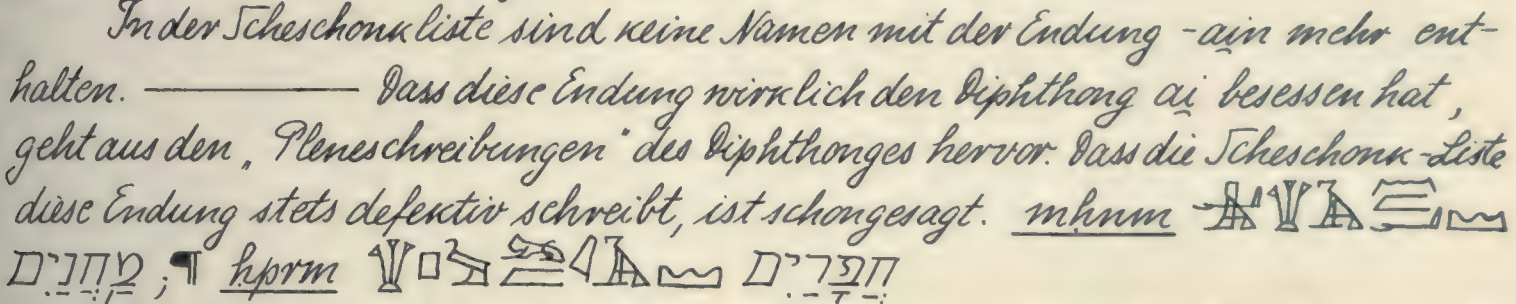 In der Scheschonkliste sind keine Namen mit der Endung -ai̯n mehr ent-
halten. ——— Dass diese Endung wirklich den Diphthong ai̯ besessen hat,
geht aus den „Pleneschreibungen“ des Diphthonges hervor. Dass die Scheschonk-Liste
diese Endung stets defektiv schreibt, ist schon gesagt. mḥnm
מַחֲנַיִם; ¶ ḥprm חֲפָרַיִם